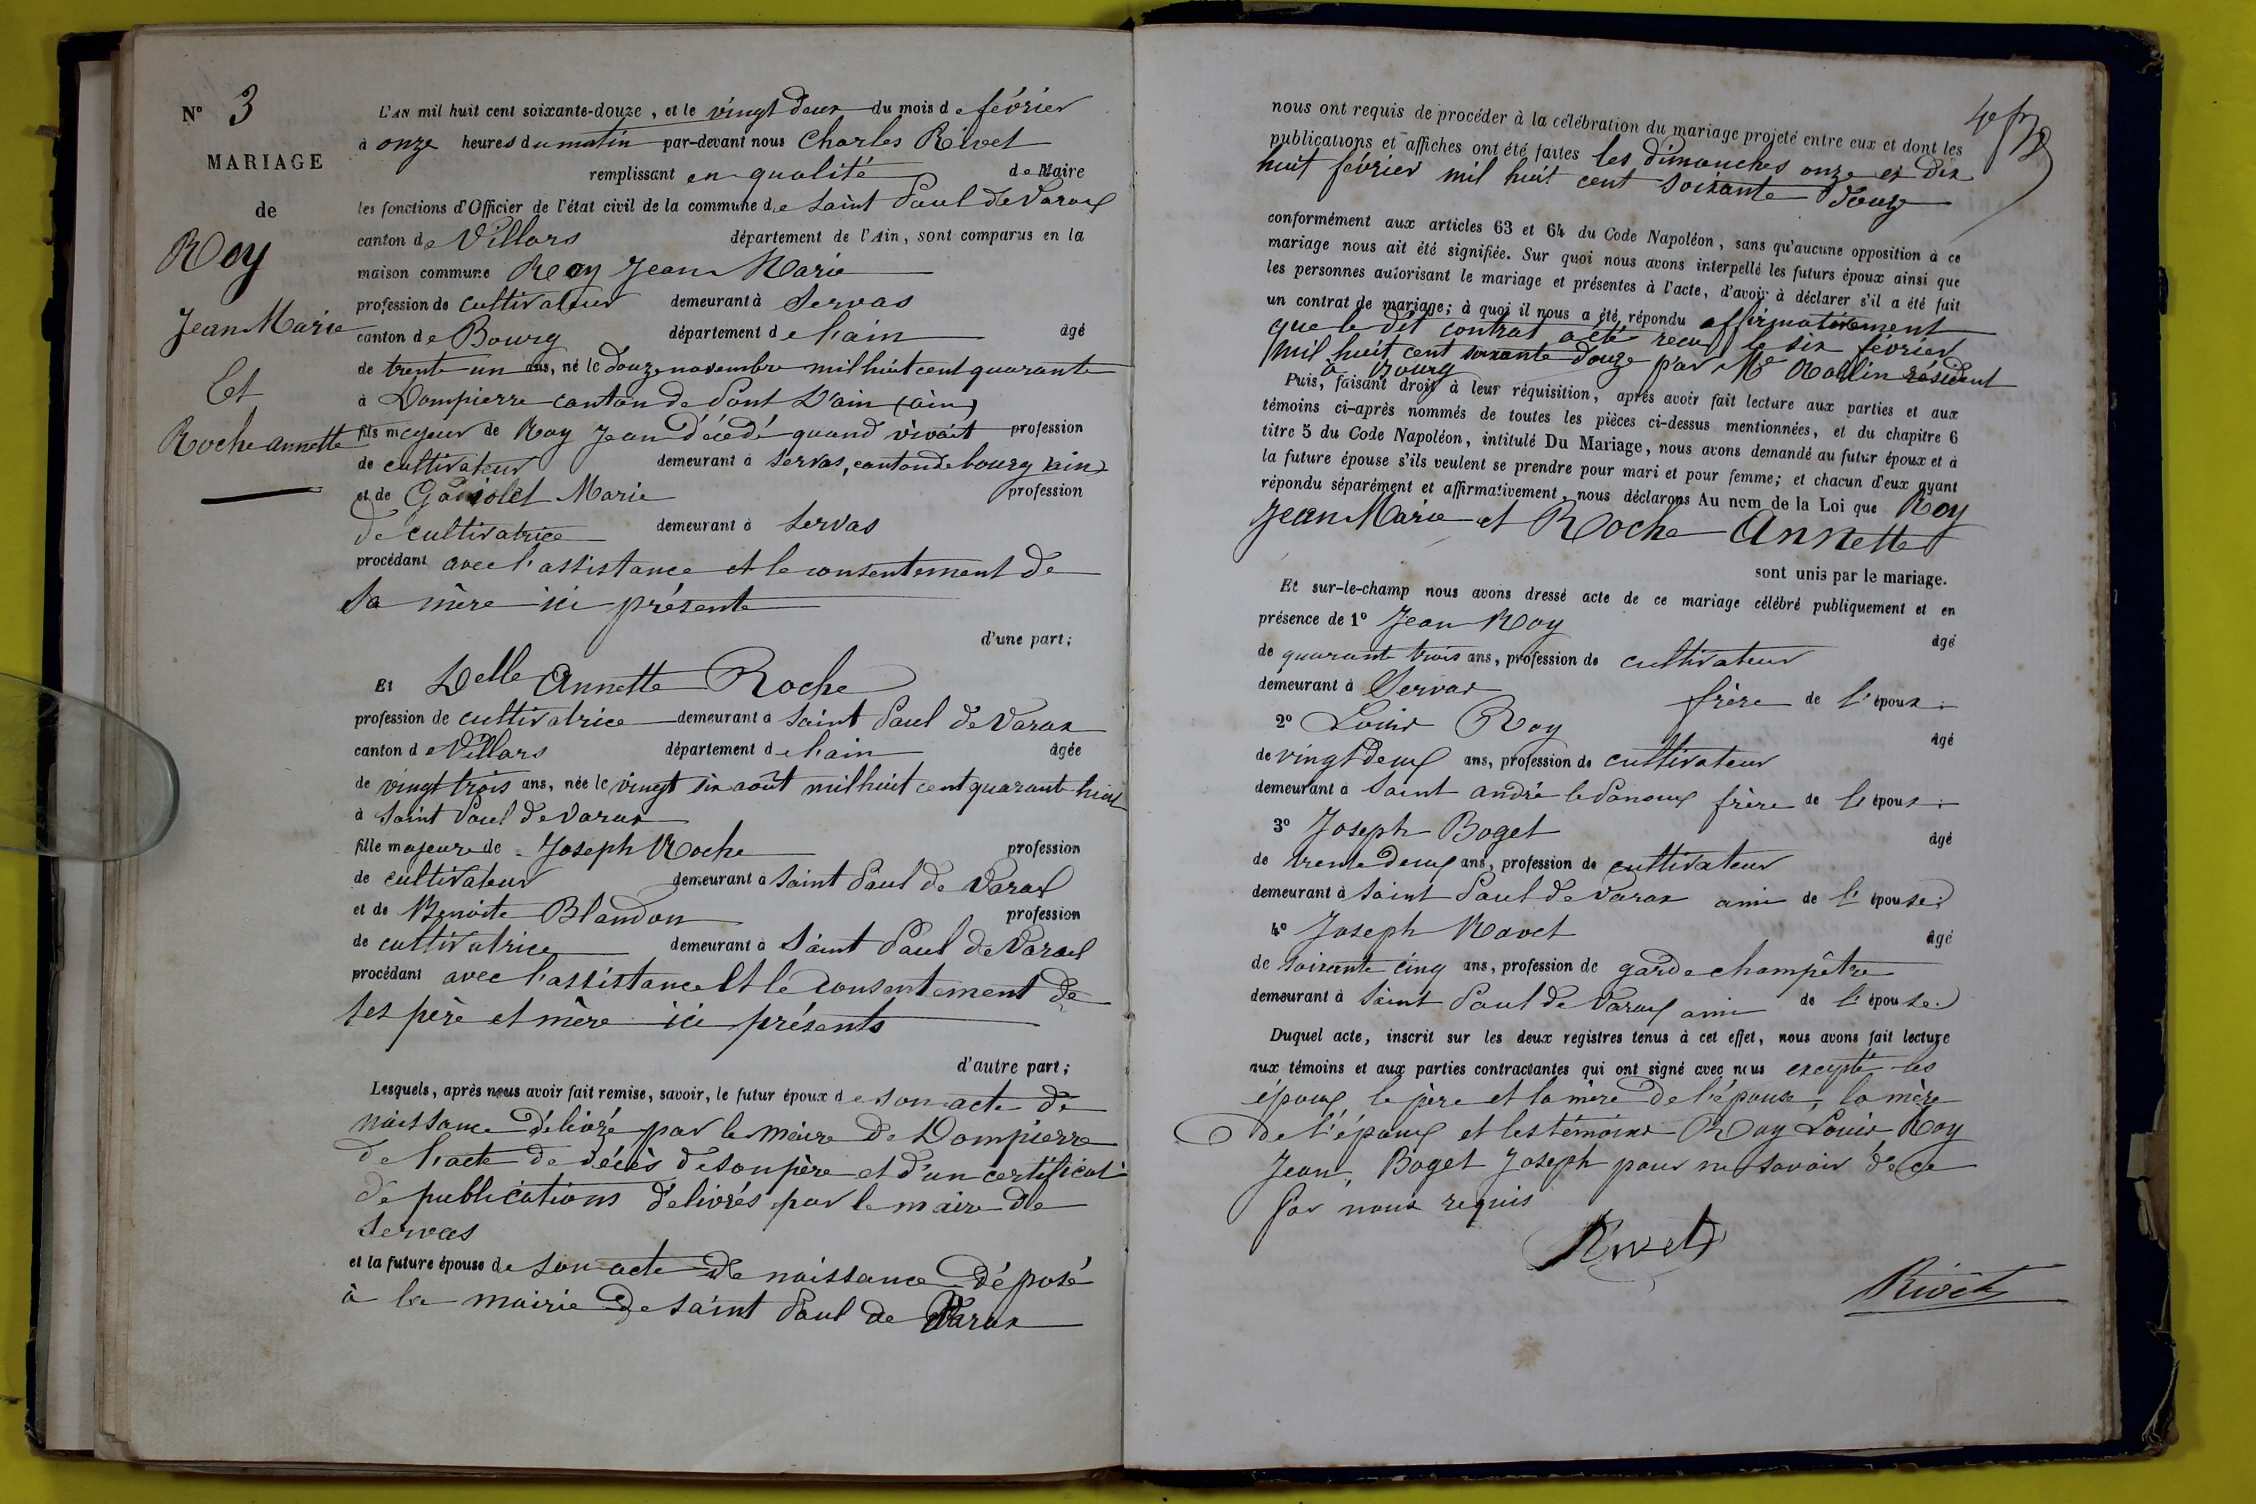 N° 3
MARIAGE
de
Roy
Jean Marie
Et
Roche annette
L'AN mil huit cent soixante-douze, et le vingt deux du mois de février
à onze heures du matin par-devant nous Charles Rivet
remplissant en qualité de Maire
les fonctions d'Officier de l'état civil de la commune de Saint Paul de Varax
canton de Villars département de l'Ain, sont comparus en la
maison commune Roy Jean Marie
profession de cultivateur demeurant à Servas
canton de Bourg département de l'ain âgé
de trente un ans, né le douze novembre mil huit cent quarante
à Dompierre canton de Pont D'ain (ain)
fils majeur de Roy Jean décédé quand vivait profession
de cultivateur demeurant à Servas, canton de bourg (ain)
et de Marie profession
de cultivatrice demeurant à Servas
procédant avec l'assistance et le consentement de
sa mère ici présente
d'une part;
Et Delle Annette Roche
profession de cultivatrice demeurant à Saint Paul de Varax
canton de Villars département de l'ain âgée
de vingt trois ans, née le vingt six août mil huit cent quarante huit
à Saint Paul de Varax
fille majeure de Joseph Roche profession
de cultivateur demeurant à Saint Paul de Varax
et de Benoite Blandon profession
de cultivatrice demeurant à Saint Paul de Varax
procédant avec l'assistance Et le consentement de
ses père et mère ici présents
d'autre part;
Lesquels, après nous avoir fait remise, savoir, le futur époux de son acte de
naissance délivré par le maire de Dompierre
de l'acte de décès de son père et d'un certificat
de publications délivrés par le maire de
Servas
et la future épouse de son acte de naissance déposé
à la mairie de Saint Paul de Varax
nous ont requis de procéder à la célébration du mariage projeté entre eux et dont les
publications et affiches ont été faites les dimanches onze et dix
huit février mil huit cent soixante douze
conformément aux articles 63 et 64 du Code Napoléon, sans qu'aucune opposition à ce
mariage nous ait été signifiée. Sur quoi nous avons interpellé les futurs époux ainsi que
les personnes autorisant le mariage et présentes à l'acte, d'avoir à déclarer s'il a été fait
un contrat de mariage; à quoi il nous a été répondu affirmativement
que le dit contrat a été reçu le six février
mil huit cent soixante douze par Me Rollin résident
à Bourg
Puis, faisant droit à leur réquisition, après avoir fait lecture aux parties et aux
témoins ci-après nommés de toutes les pièces ci-dessus mentionnées, et du chapitre 6
titre 5 du Code Napoléon, intitulé Du Mariage, nous avons demandé au futur époux et à
la future épouse s'ils veulent se prendre pour mari et pour femme; et chacun d'eux ayant
répondu séparément et affirmativement, nous déclarons Au nom de la Loi que Roy
Jean Marie et Roche Annette
sont unis par le mariage.
Et sur-le-champ nous avons dressé acte de ce mariage célébré publiquement et en
présence de 1° Jean Roy âgé
de quarante trois ans, profession de cultivateur
demeurant à Servas frère de l'époux.
2° Louis Roy âgé
de vingt deux ans, profession de cultivateur
demeurant à Saint andré le Panoux frère de l'époux.
3° Joseph Boget âgé
de trente deux ans, profession de cultivateur
demeurant à Saint Paul de Varax ami de l'épouse.
4° Joseph Ravet âgé
de soixante cinq ans, profession de garde champêtre
demeurant à Saint Paul de Varax ami de l'épouse.
Duquel acte, inscrit sur les deux registres tenus à cet effet, nous avons fait lecture
aux témoins et aux parties contractantes qui ont signé avec nous excepté les
époux, le père et la mère de l'épouse, la mère
de l'époux et les témoins Roy Louis, Roy
Jean, Boget Joseph pour ne savoir de ce
par nous requis
Rivet